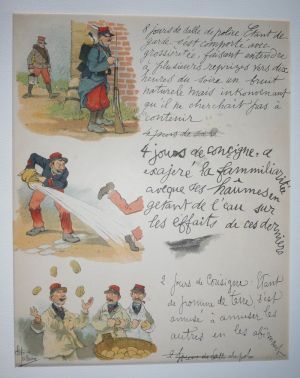 8 jours de salle de police Étant de
garde s'est comporté avec
grossièreté, faisant entendre
à plusieurs reprises vers dix
heures du soire un bruit
naturele mais inkonvenant
qu'il ne cherchait pas à
contenir
4 jours de consigne. a
exajeré la fammiliarité
aveque ses haumes en
getant de l'eau sur
les effaits de ces derniers
2 jours de Consigne. Étant
de pomme de terre, s'est
amusé à amuser les
autres en les abîmant